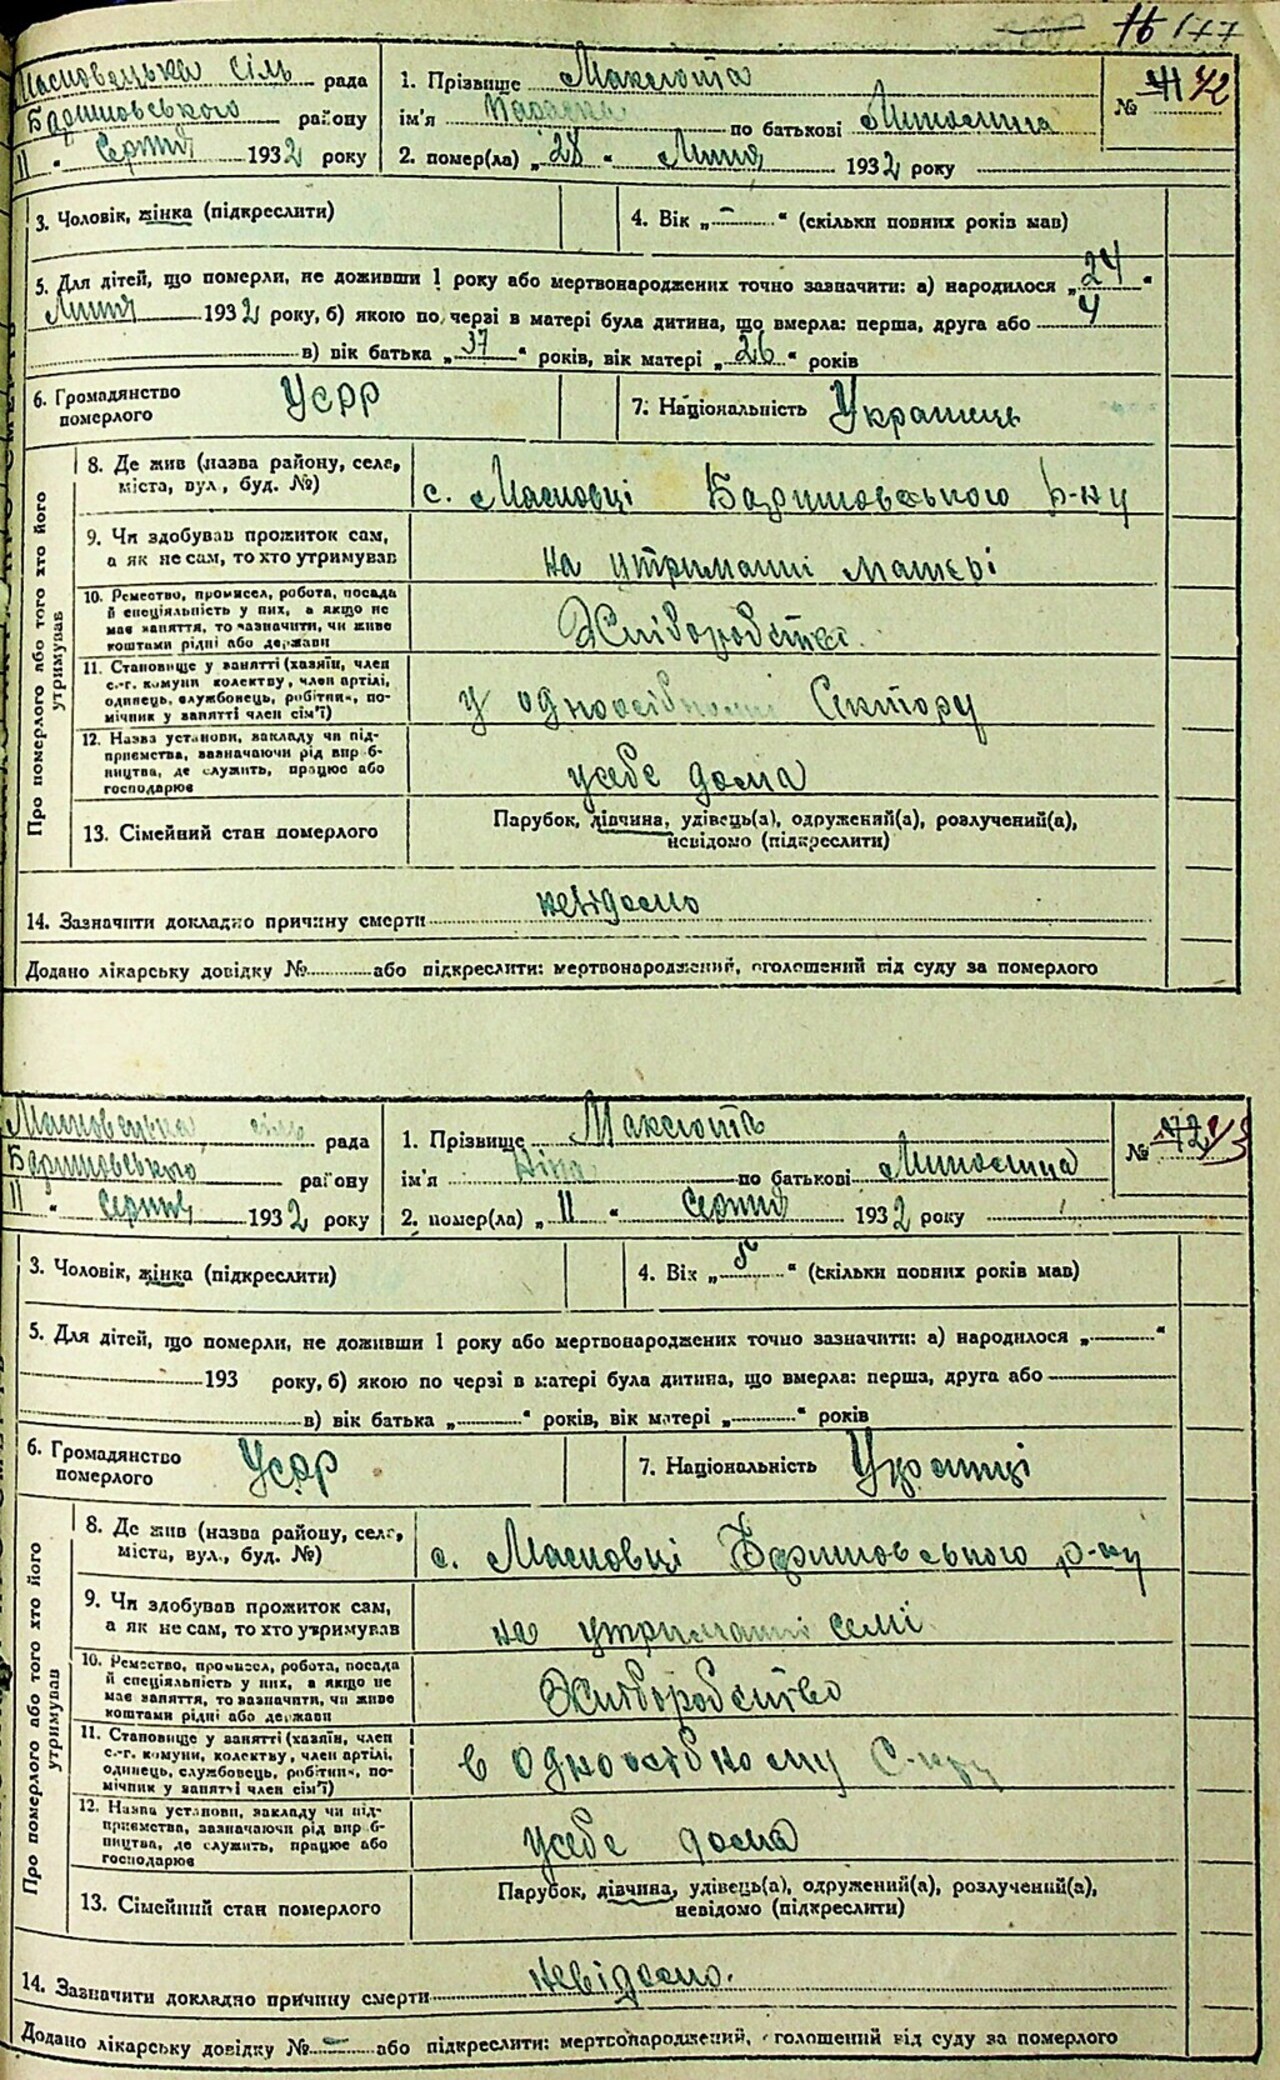 16 177
Масковецька сіль рада
Баришовського району
11 " Серпня 1932 року
1. Прізвище Максюта
ім'я Параска по батькові
2. помер(ла) „28 " Липня 1932 року
№ 41 42
3. Чоловік, жінка (підкреслити)
4. Вік „ - " (скільки повних років мав)
5. Для дітей, що померли, не доживши 1 року або мертвонароджених точно зазначити: а) народилося „24"
Липня 1932 року, б) якою по черзі в матері була дитина, що вмерла: перша, друга або 4
в) вік батька „37" років, вік матері „26" років
6. Громадянство померлого УСРР
7. Національність Українець
Про померлого або того хто його утримував
8. Де жив (назва району, села, міста, вул., буд. №)
с. Масковці Баришовського р-ну
9. Чи здобував прожиток сам, а як не сам, то хто утримував
на утриманні матері
10. Ремество, промисел, робота, посада й спеціяльність у них, а якщо не має заняття, то зазначити, чи живе коштами рідні або держави
Хліборобство
11. Становище у занятті (хазяїн, член с.-г. комуни колектву, член артілі, одинець, службовець, робітник, помічник у занятті член сім'ї)
у одноосібному Сектору
12. Назва установи, закладу чи підприємства, зазначаючи рід виробництва, де служить, працює або господарює
усебе дома
13. Сімейний стан померлого
Парубок, дівчина, удівець(а), одружений(а), розлучений(а), невідомо (підкреслити)
14. Зазначити докладно причину смерти невідомо
Додано лікарську довідку № або підкреслити: мертвонароджений, оголошений від суду за померлого
Масковецька сіль рада
Баришовського району
11 " Серпня 1932 року
1. Прізвище Максюта
ім'я Ніна по батькові
2. помер(ла) „11 " Серпня 1932 року
№ 42 43
3. Чоловік, жінка (підкреслити)
4. Вік „5" (скільки повних років мав)
5. Для дітей, що померли, не доживши 1 року або мертвонароджених точно зазначити: а) народилося „ "
193 року, б) якою по черзі в матері була дитина, що вмерла: перша, друга або
в) вік батька „ " років, вік матері „ " років
6. Громадянство померлого УСРР
7. Національність Українці
Про померлого або того хто його утримував
8. Де жив (назва району, села, міста, вул., буд. №)
с. Масковці Баришовського р-ну
9. Чи здобував прожиток сам, а як не сам, то хто утримував
на утриманні семї
10. Ремество, промисел, робота, посада й спеціяльність у них, а якщо не має заняття, то зазначити, чи живе коштами рідні або держави
Хліборобство
11. Становище у занятті (хазяїн, член с.-г. комуни, колектву, член артілі, одинець, службовець, робітник, помічник у занятті член сім'ї)
в одноосібному С-ру
12. Назва установи, закладу чи підприємства, зазначаючи рід виробництва, де служить, працює або господарює
усебе дома
13. Сімейний стан померлого
Парубок, дівчина, удівець(а), одружений(а), розлучений(а), невідомо (підкреслити)
14. Зазначити докладно причину смерти невідомо.
Додано лікарську довідку № - або підкреслити: мертвонароджений, оголошений від суду за померлого